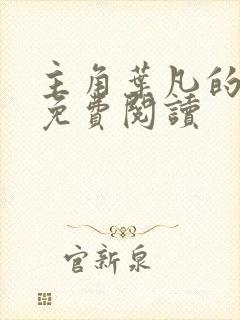 主角葉凡的
免費閱讀
官新泉